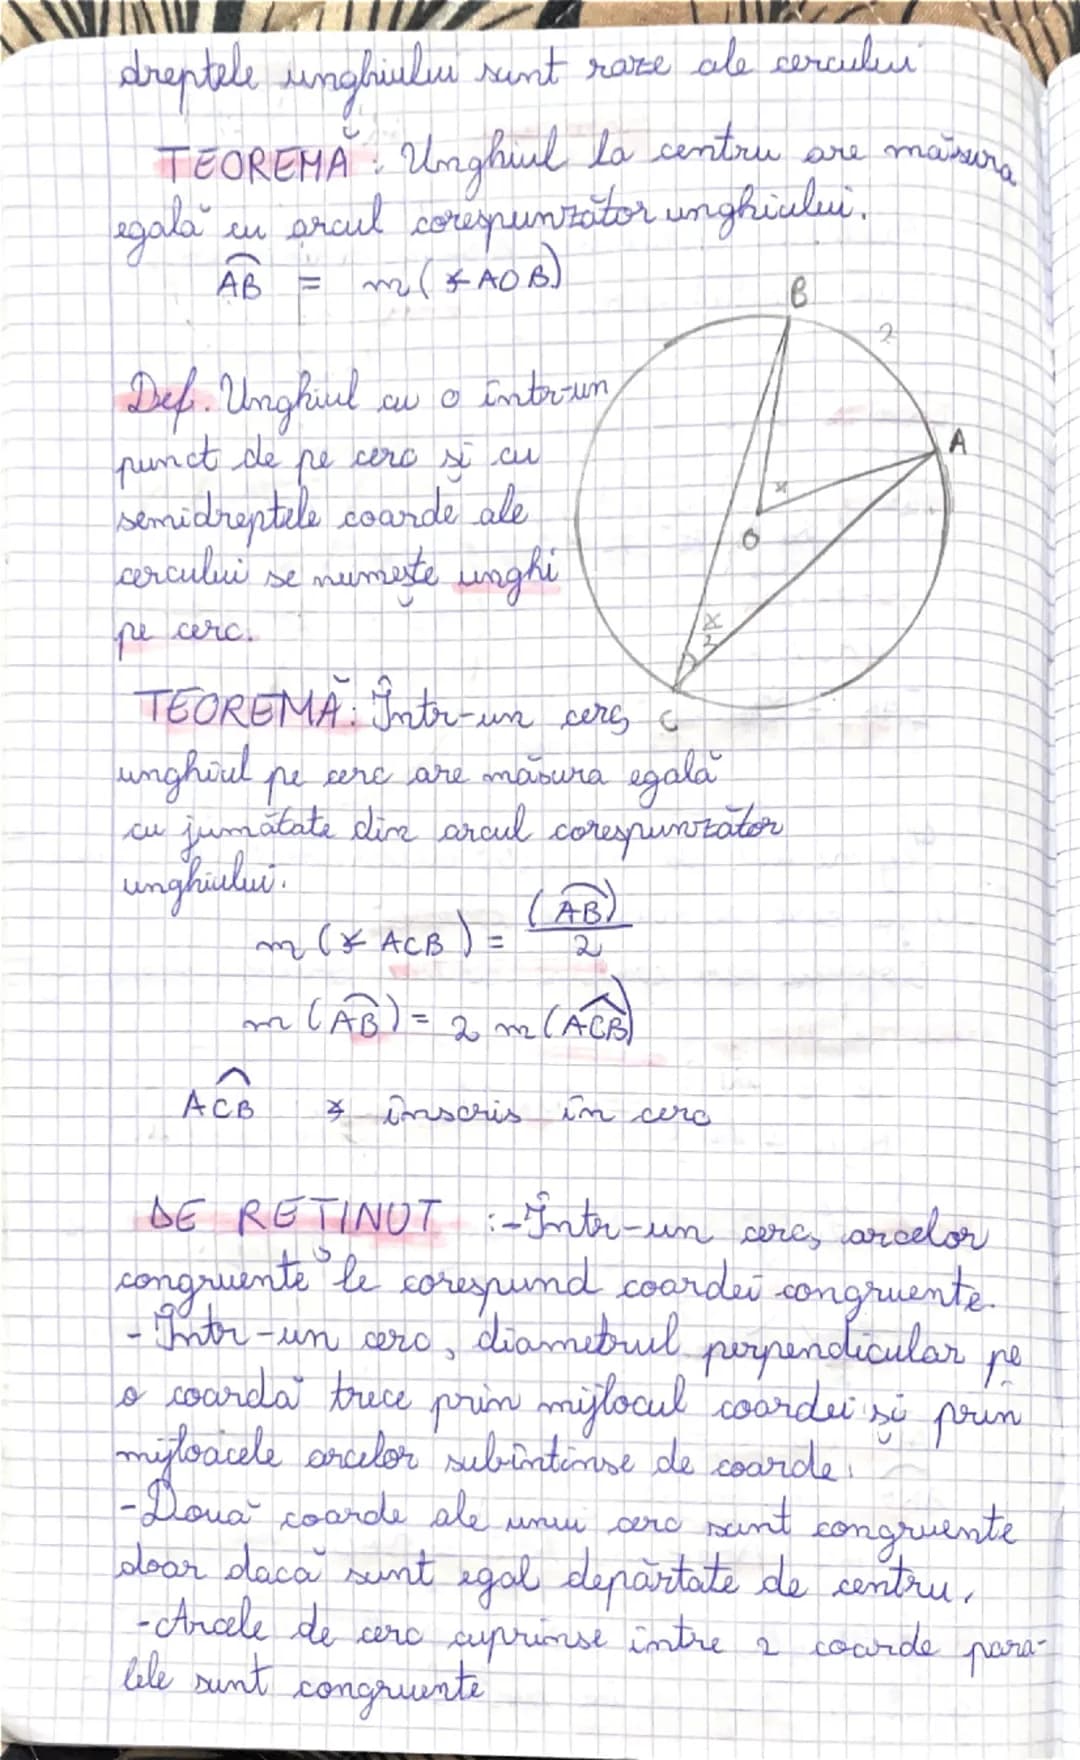 dreptele unghiului sunt raze ale cercului
TEOREMĂ: Unghiul la centru are măsura
egală cu arcul corespunzător unghiului.
A͡B = m(∢AOB)
B
?
Def. Unghiul cu o într-un
A
punct de pe cerc și cu
x
semidreptele coarde ale
O
cercului se numește unghi
x/2
pe cerc.
TEOREMĂ: Într-un cerc,
C
unghiul pe cerc are măsura egală
cu jumătate din arcul corespunzător
unghiului.
m(∢ACB) = (A͡B)/2
m(A͡B) = 2 m(AĈB)
AĈB ∢ înscris în cerc
DE REȚINUT :-Într-un cerc, arcelor
congruente le corespund coardei congruente.
-Într-un cerc, diametrul perpendicular pe
o coardă trece prin mijlocul coardei și prin
mijloacele arcelor subîntinse de coarde.
-Două coarde ale unui cerc sunt congruente
doar dacă sunt egal depărtate de centru.
-Arcele de cerc cuprinse între 2 coarde para-
lele sunt congruente